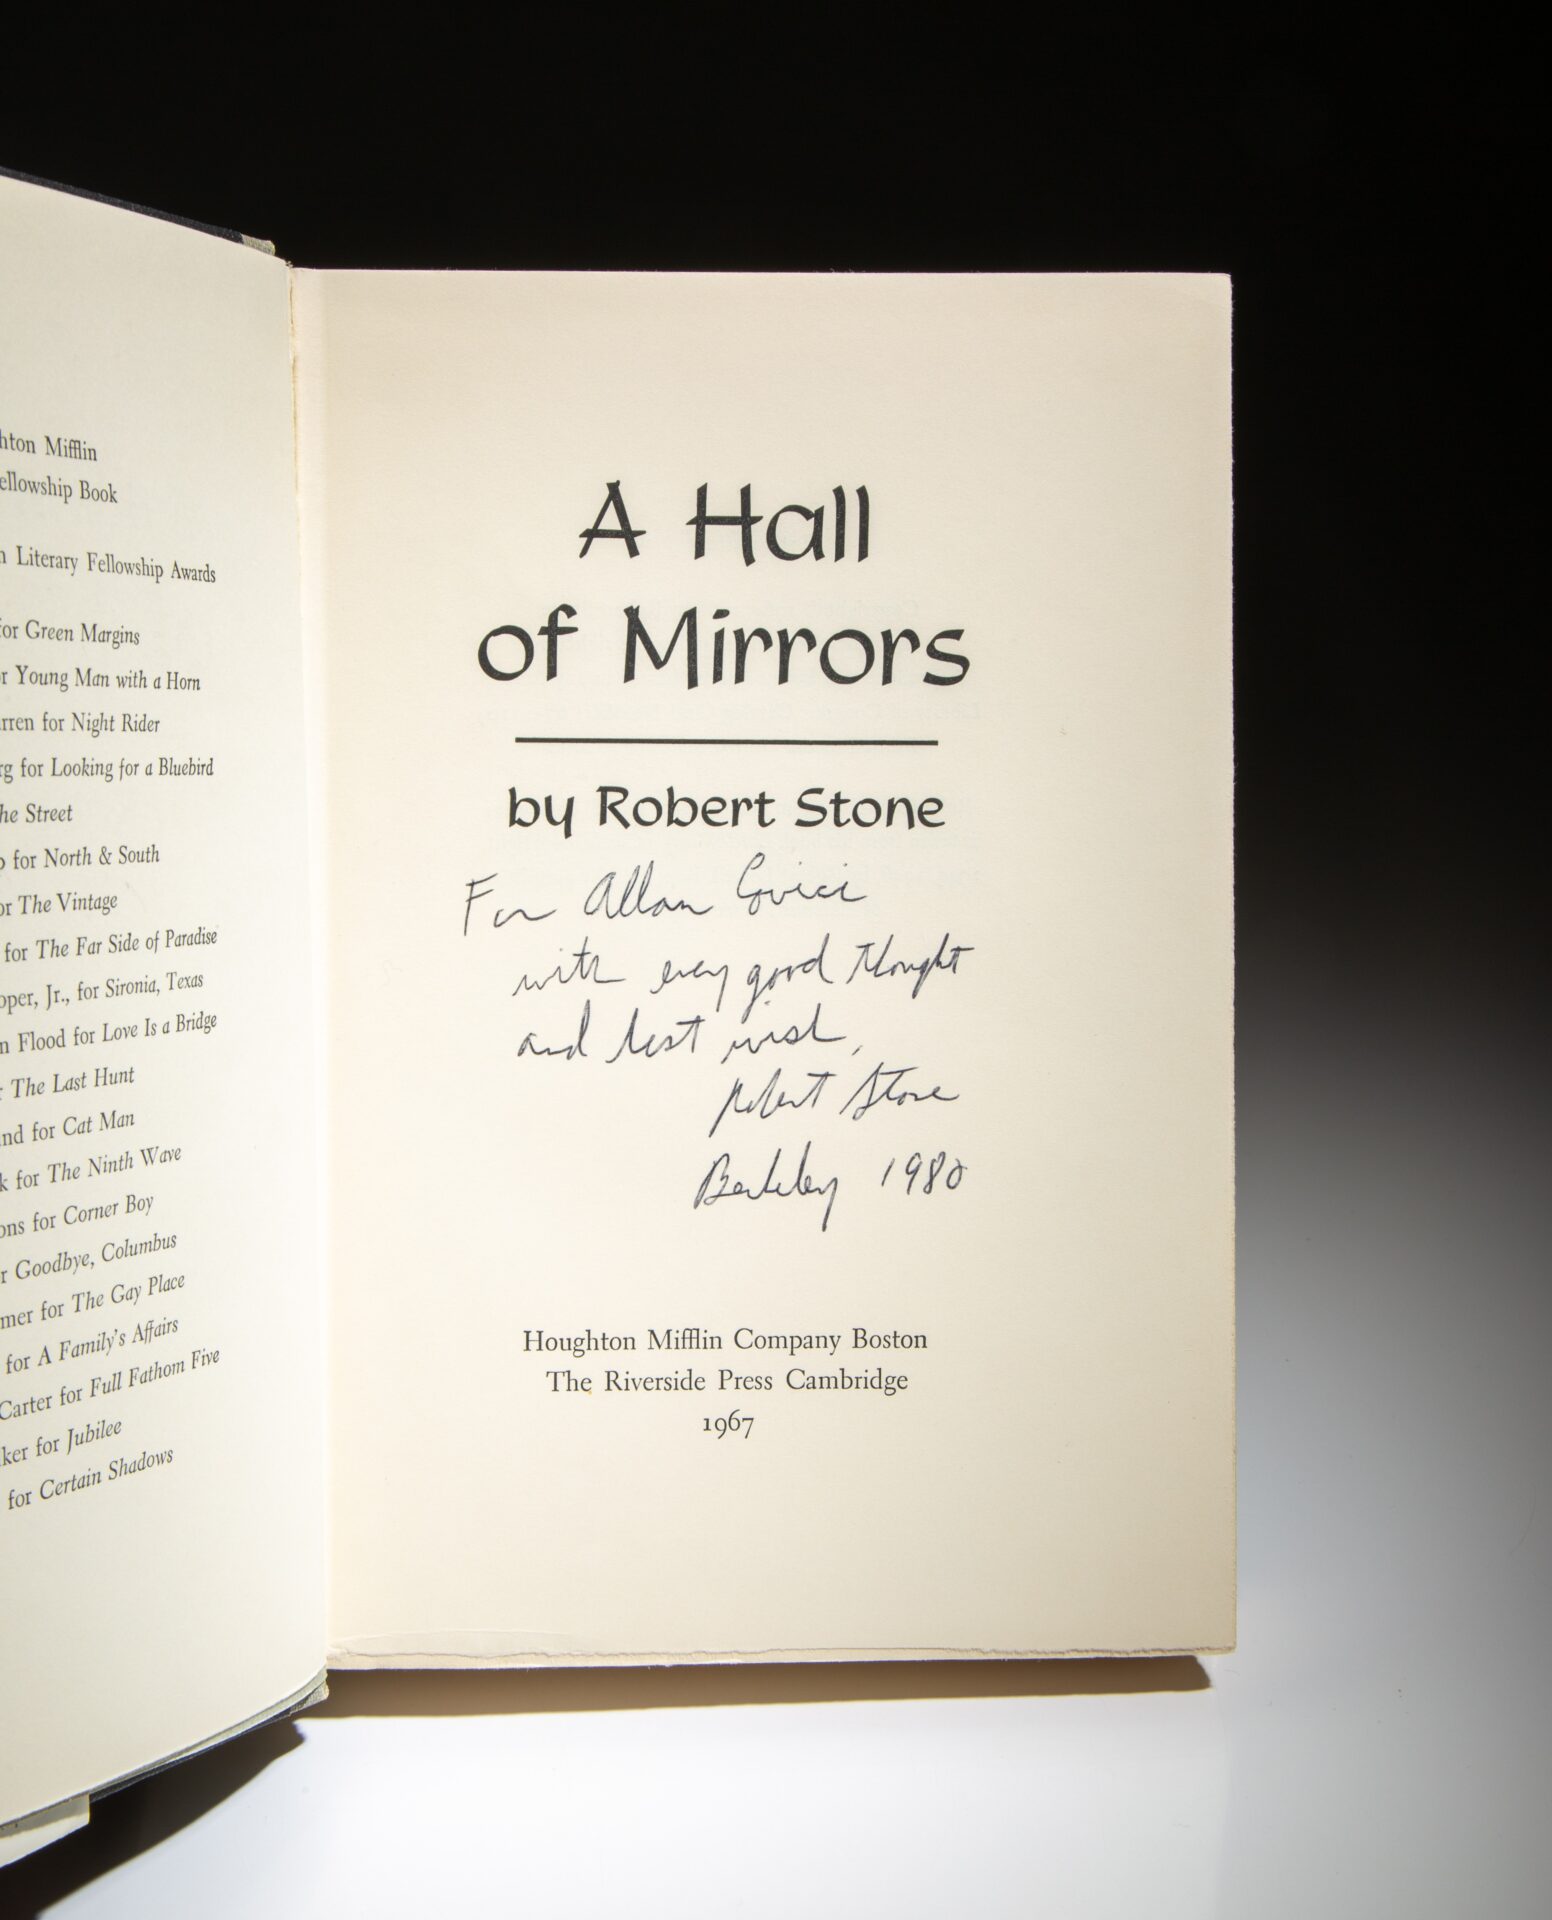 hton Mifflin
ellowship Book
n Literary Fellowship Awards
for Green Margins
r Young Man with a Horn
rren for Night Rider
rg for Looking for a Bluebird
he Street
p for North & South
or The Vintage
for The Far Side of Paradise
oper, Jr., for Sironia, Texas
n Flood for Love Is a Bridge
r The Last Hunt
and for Cat Man
k for The Ninth Wave
ons for Corner Boy
r Goodbye, Columbus
mer for The Gay Place
for A Family's Affairs
Carter for Full Fathom Five
ker for Jubilee
for Certain Shadows
A Hall
of Mirrors
by Robert Stone
For Allan Covici
with every good thought
and best wish,
Robert Stone
Berkeley 1980
Houghton Mifflin Company Boston
The Riverside Press Cambridge
1967